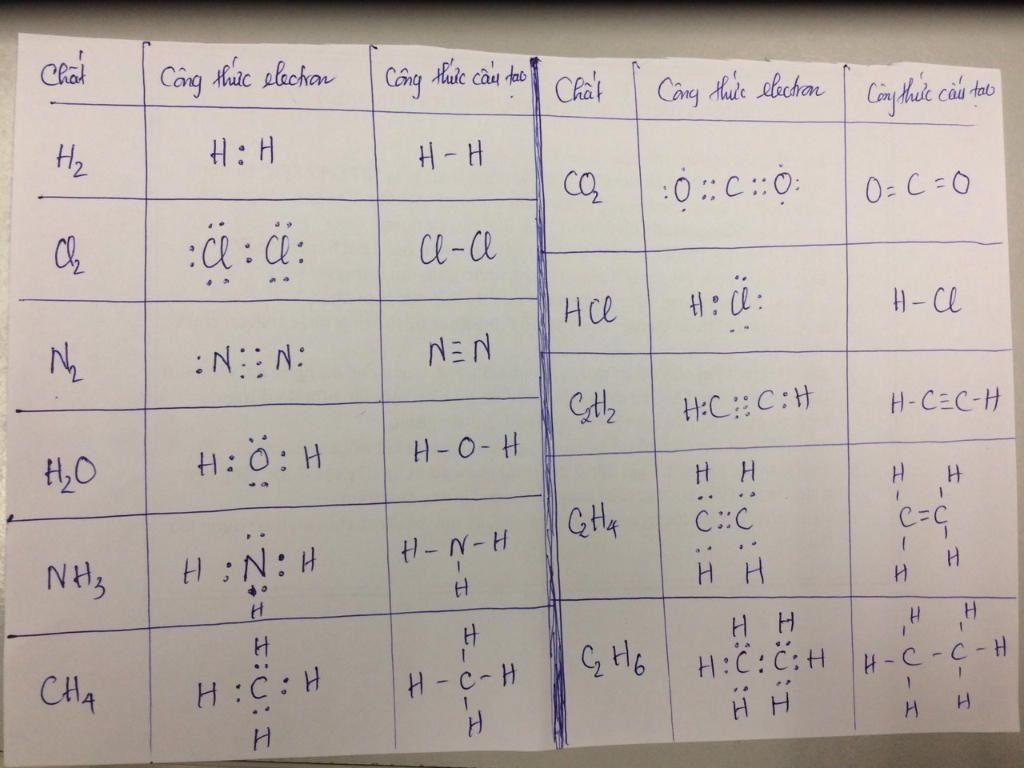 Chất Công thức electron Công thức cấu tạo
H2 H : H H - H
Cl2 :Cl : Cl: Cl - Cl
N2 :N ⋮⋮ N: N ≡ N
H2O H : O : H H - O - H
NH3 H : N : H H - N - H
H H
CH4 H H
H : C : H H - C - H
H H
Chất Công thức electron Công thức cấu tạo
CO2 :O :: C :: O: O = C = O
HCl H : Cl: H - Cl
C2H2 H:C ⋮⋮ C:H H - C ≡ C - H
C2H4 H H H H
C :: C C = C
H H H H
C2H6 H H H H
H : C : C : H H - C - C - H
H H H H